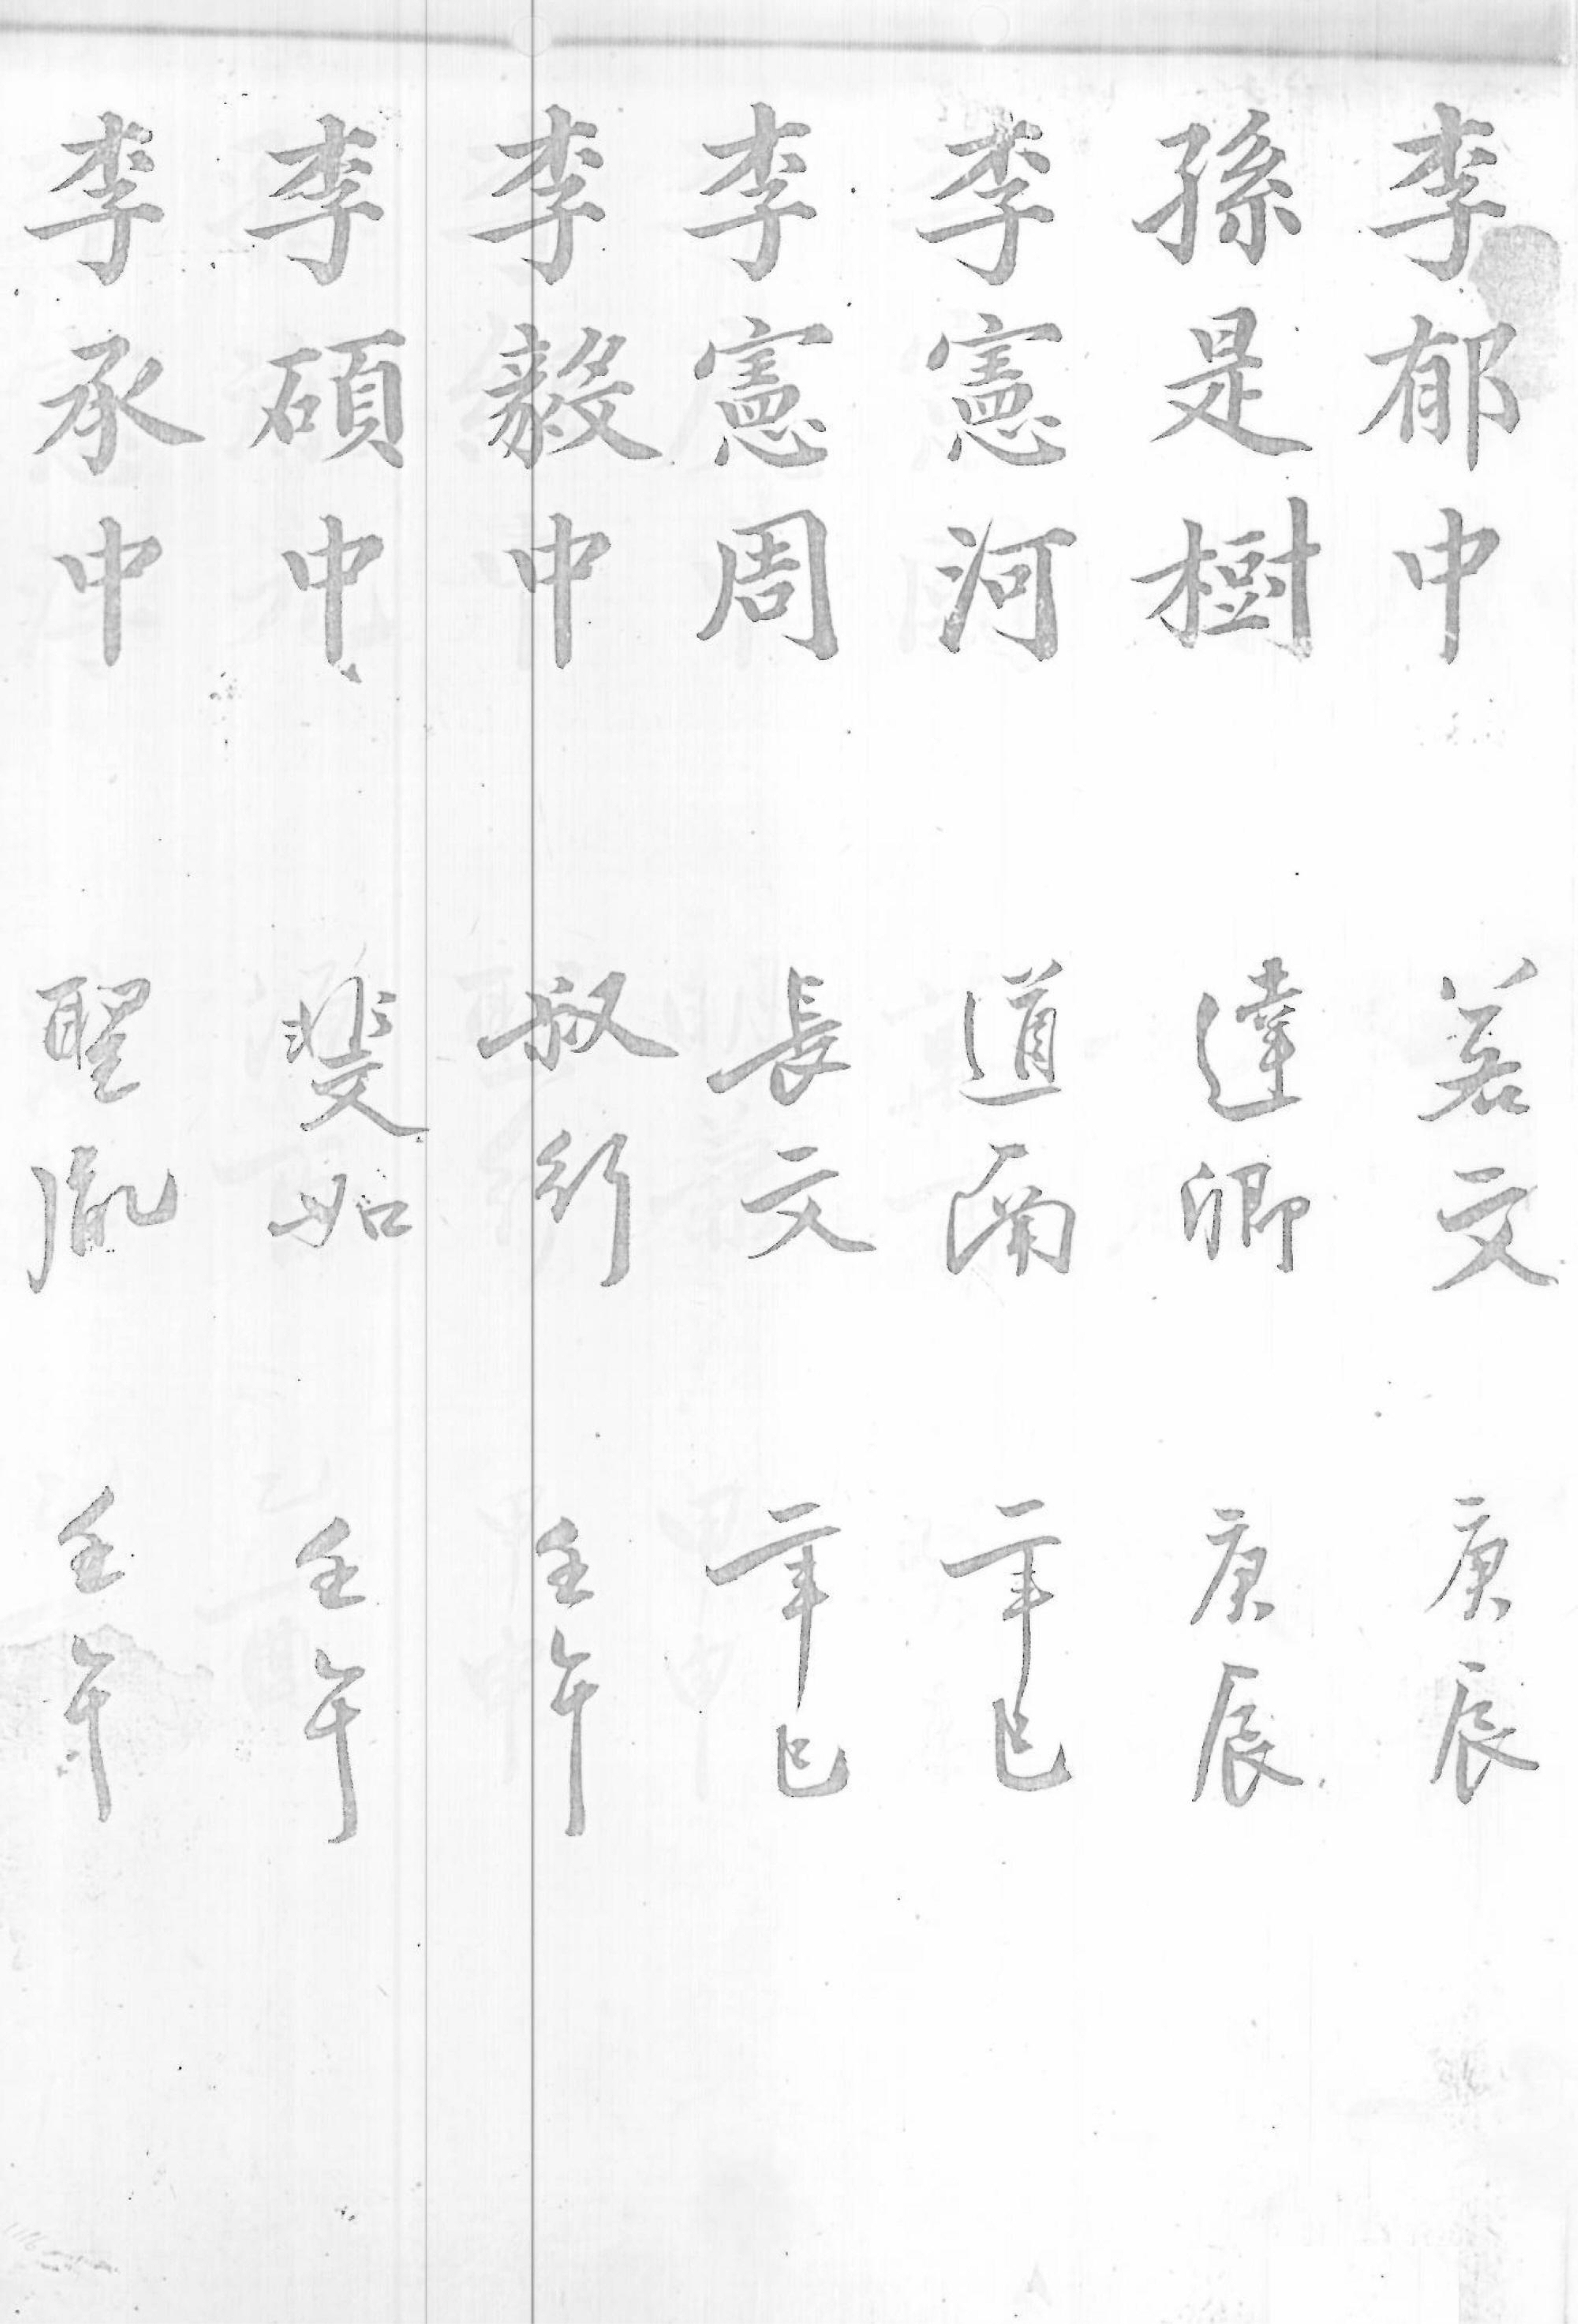 李郁中 若文 庚辰
孫是樹 達卿 庚辰
李憲河 道南 辛巳
李憲周 長文 辛巳
李毅中 叔行 壬午
李碩中 斐如 壬午
李承中 聖胤 壬午